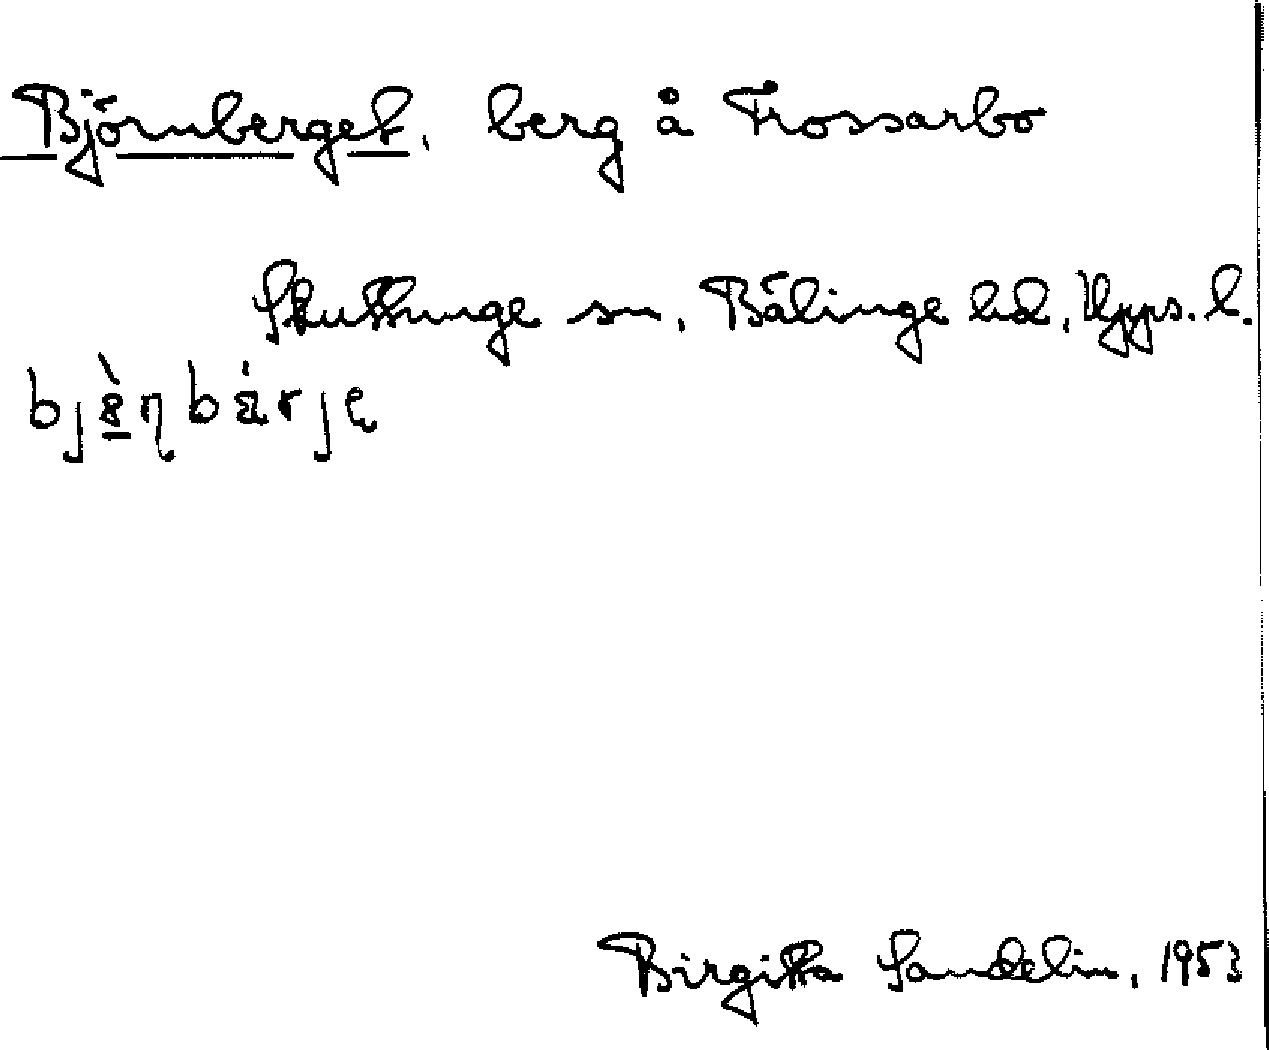 Björnberget, berg å Trossarbo
Skuttunge sn, Bälinge hd, Upps. l.
Birgitta Sandelin, 1953